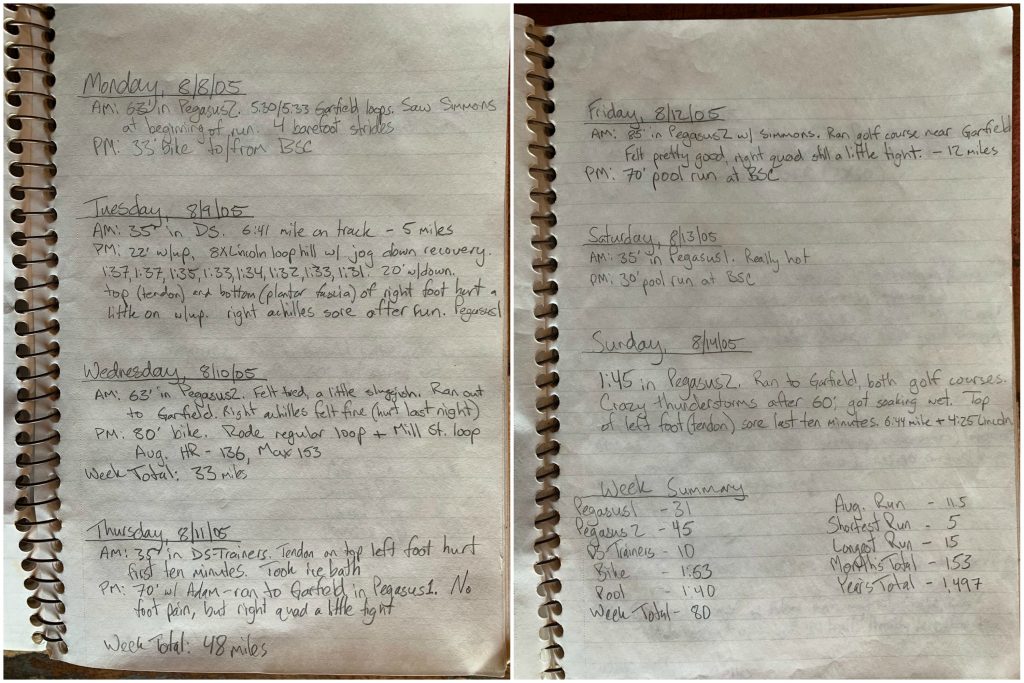 Monday, 8/8/05
AM: 63' in Pegasus2. 5:30/5:33 Garfield loops. Saw Simmons
at beginning of run. 4 barefoot strides
PM: 33' Bike to/from BSC
Tuesday, 8/9/05
AM: 35' in DS. 6:41 mile on track - 5 miles
PM: 22' w/up, 8xLincoln loop hill w/ jog down recovery.
1:37, 1:37, 1:35, 1:33, 1:34, 1:32, 1:33, 1:31. 20' w/down.
top (tendon) and bottom (plantar fascia) of right foot hurt a
little on w/up. right achilles sore after run. Pegasus1
Wednesday, 8/10/05
AM: 63' in Pegasus2. Felt tired, a little sluggish. Ran out
to Garfield. Right achilles felt fine (hurt last night)
PM: 80' bike. Rode regular loop + Mill St. loop
Avg. HR - 136, Max 153
Week Total: 33 miles
Thursday, 8/11/05
AM: 35' in DS-Trainers. Tendon on top left foot hurt
first ten minutes. Took ice bath
PM: 70' w/ Adam - ran to Garfield in Pegasus1. No
foot pain, but right quad a little tight
Week Total: 48 miles
Friday, 8/12/05
AM: 85' in Pegasus2 w/ Simmons. Ran golf course near Garfield
Felt pretty good, right quad still a little tight. - 12 miles
PM: 70' pool run at BSC
Saturday, 8/13/05
AM: 35' in Pegasus1. Really hot
PM: 30' pool run at BSC
Sunday, 8/14/05
1:45 in Pegasus2. Ran to Garfield, both golf courses.
Crazy thunderstorms after 60', got soaking wet. Top
of left foot (tendon) sore last ten minutes. 6:44 mile + 4:25 Lincoln
Week Summary
Pegasus1 - 31
Pegasus2 - 45
DS Trainers - 10
Bike - 1:53
Pool - 1:40
Week Total - 80
Avg. Run - 11.5
Shortest Run - 5
Longest Run - 15
Months Total - 153
Years Total - 1,497